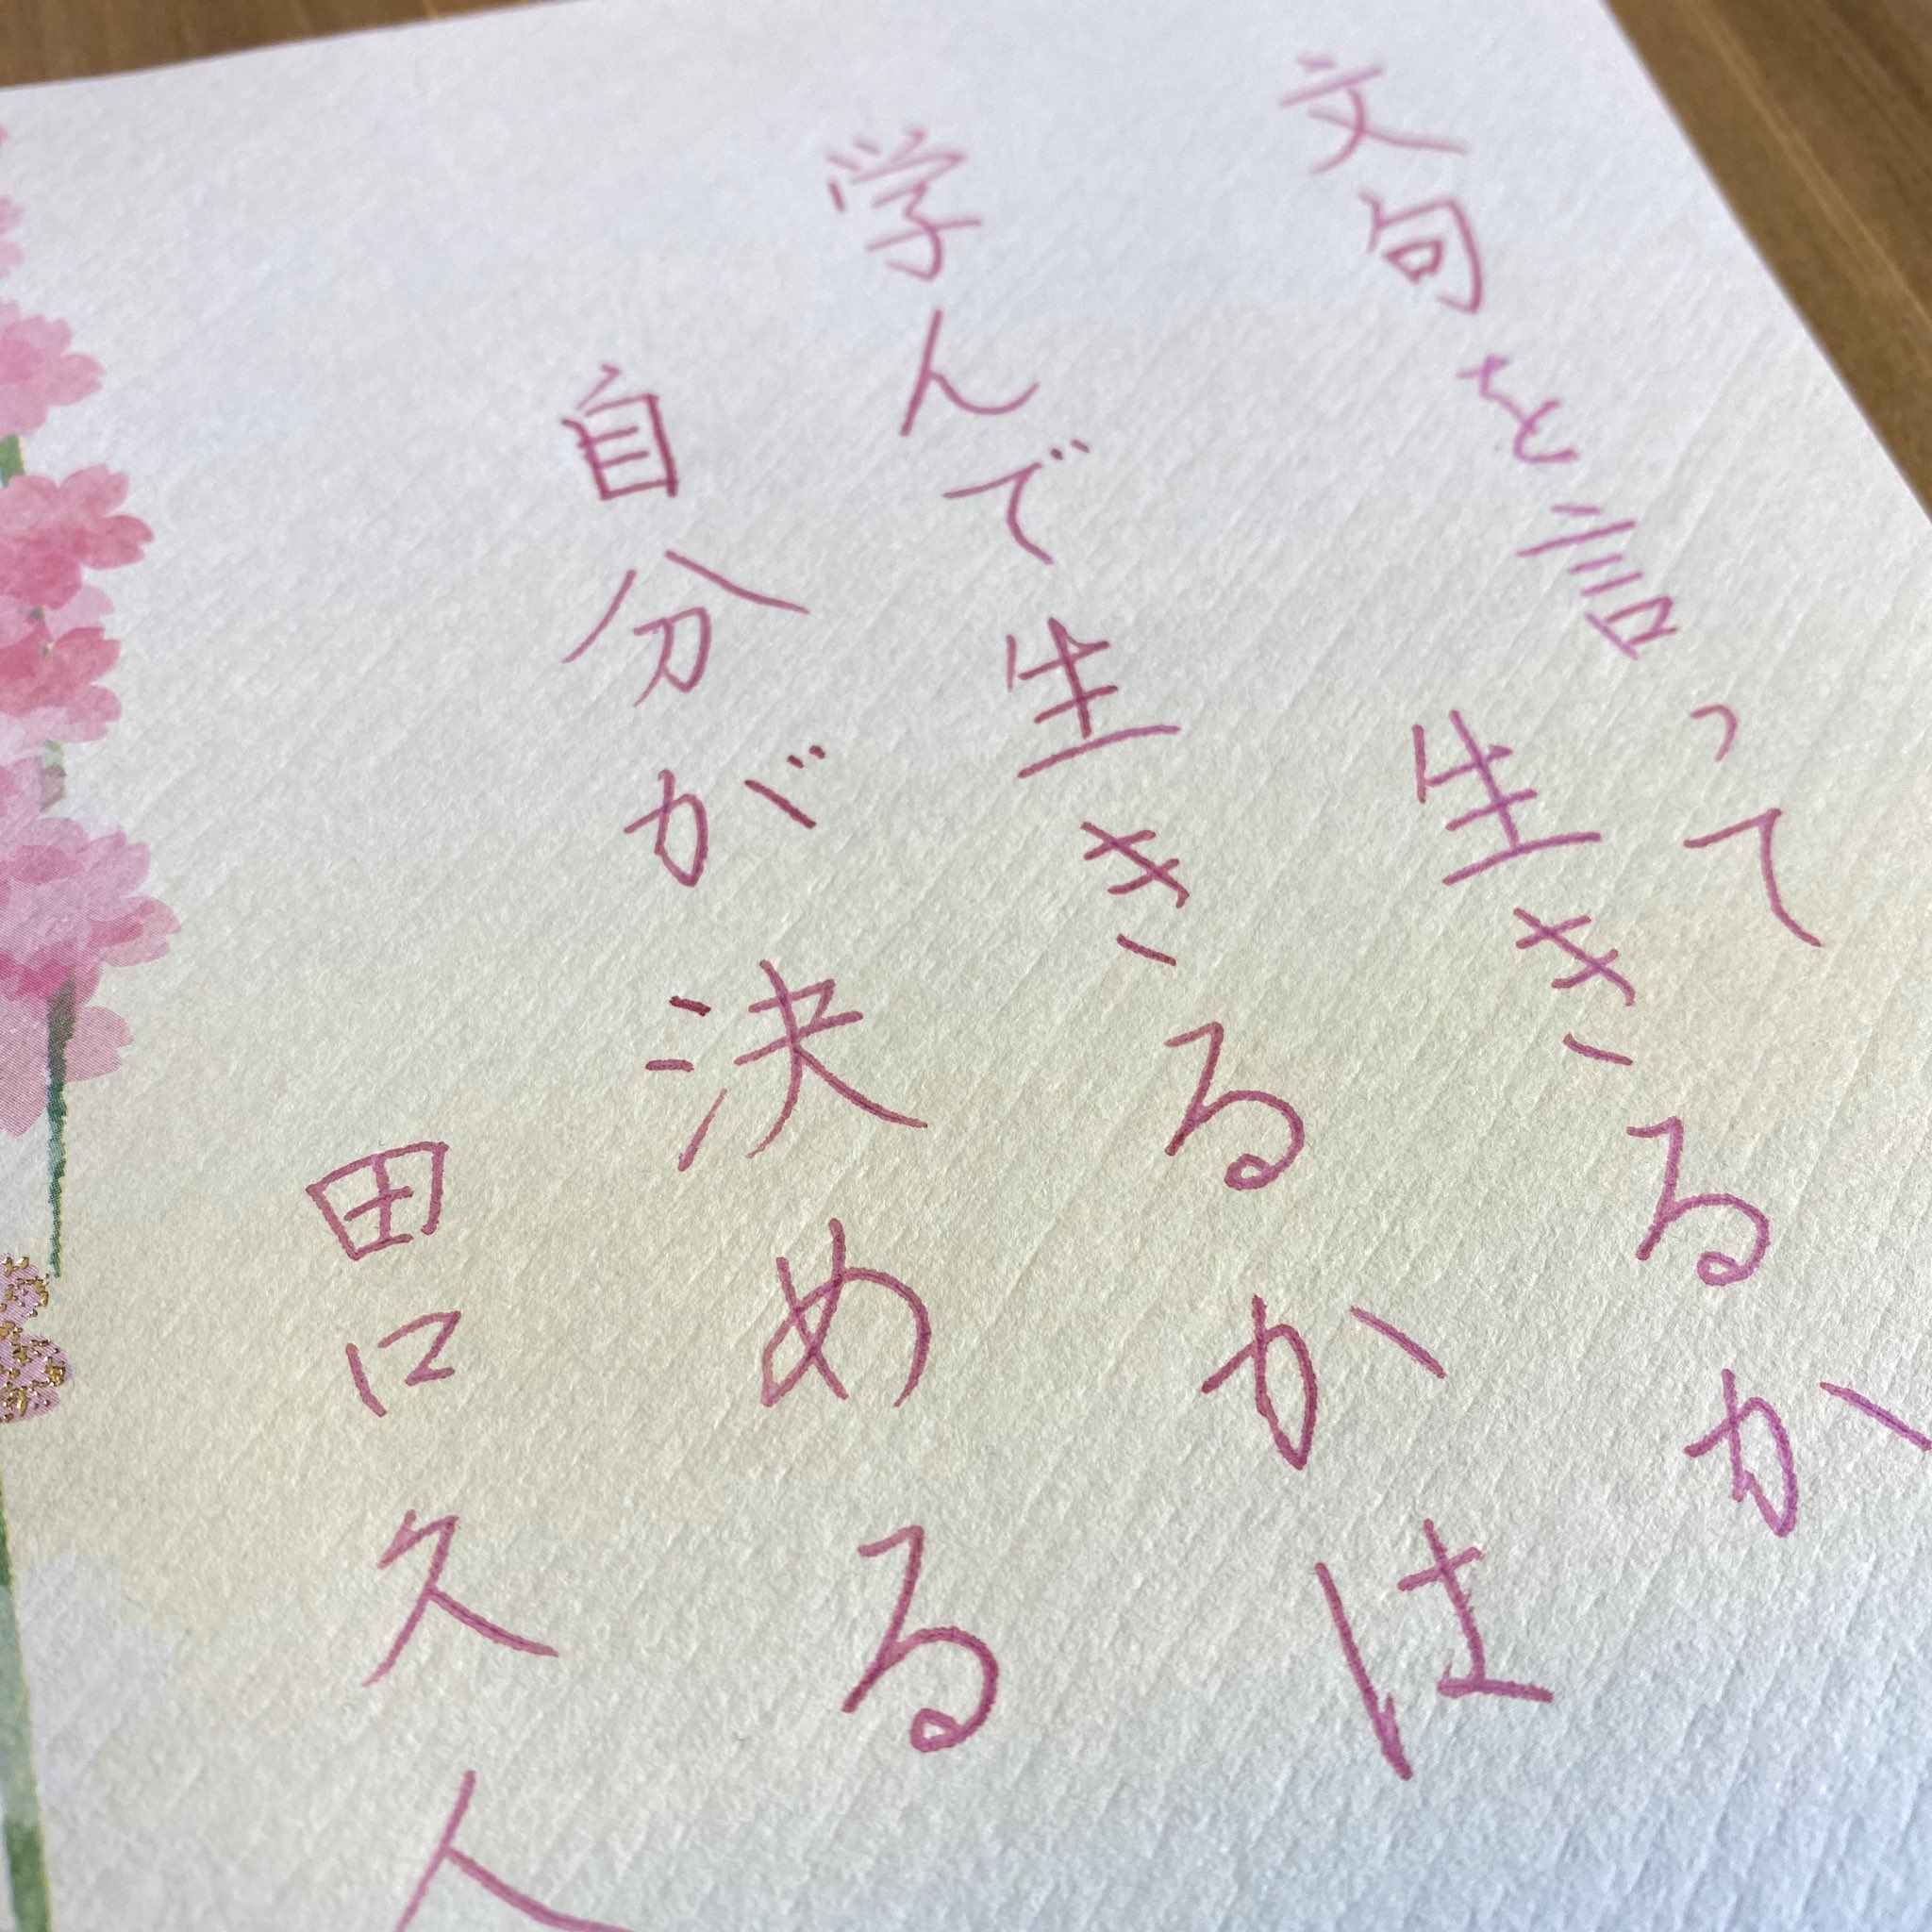 文句を言って
生きるか
学んで生きるかは
自分が決める
田口久人